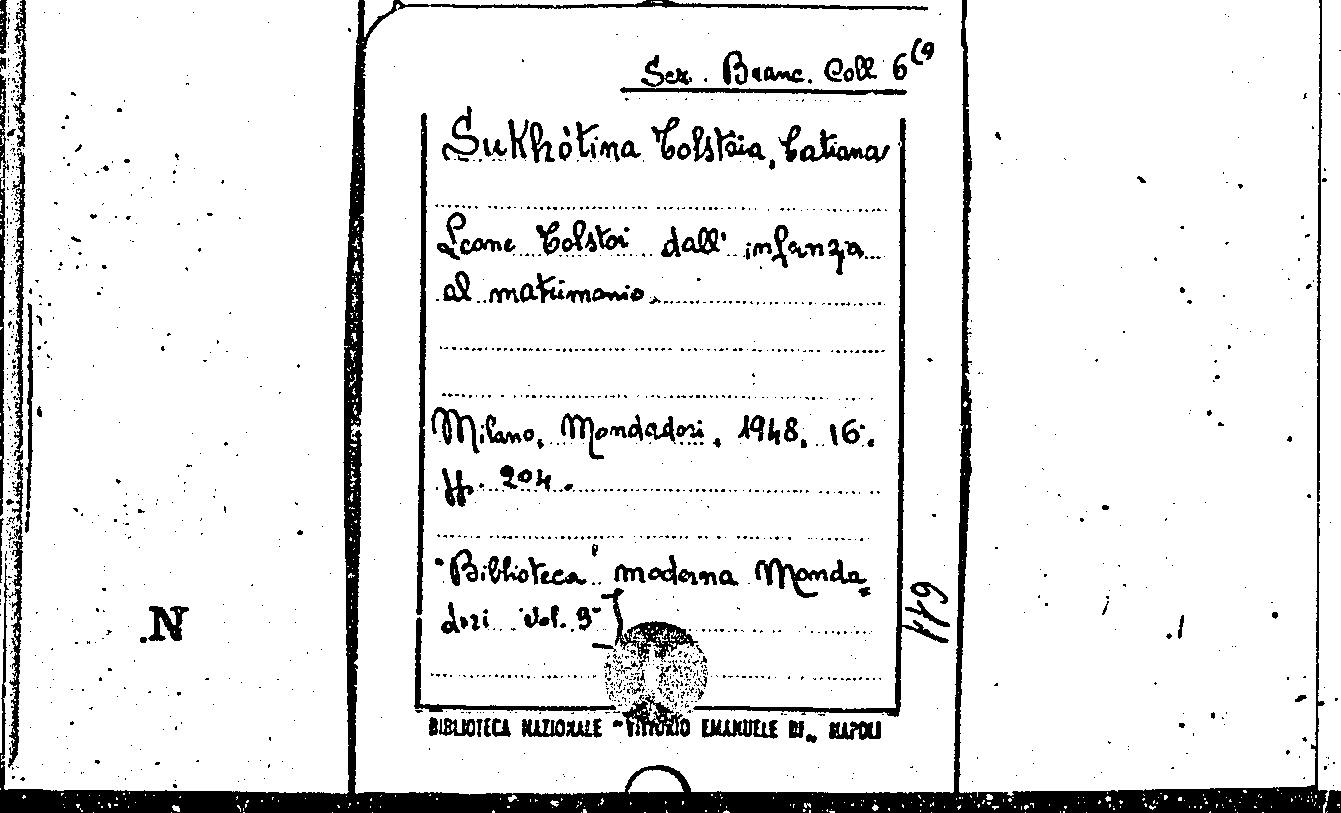 Ser. Branc. Coll 6(9
Sukhòtina Tolstòia, Tatiana
Leone Tolstoi dall' infanzia
al matrimonio.
Milano, Mondadori, 1948, 16°.
pp. 204.
"Biblioteca moderna Monda=
dori vol. 9"
644
N.
BIBLIOTECA NAZIONALE "VITTORIO EMANUELE III„ NAPOLI